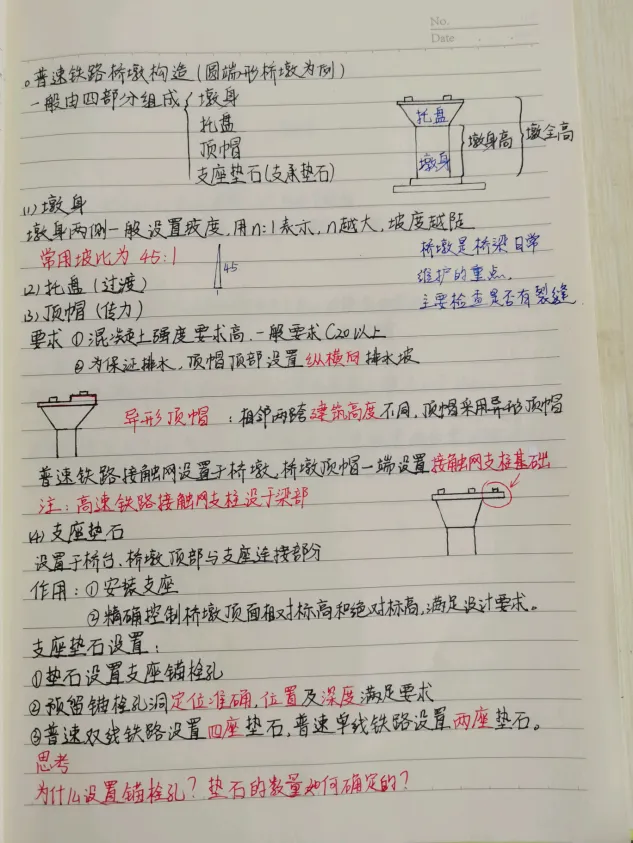 No.
Date
。普速铁路桥墩构造(圆端形桥墩为例)
一般由四部分组成 墩身
托盘
顶帽
支座垫石(支承垫石)
托盘
墩身
墩身高
墩全高
(1)墩身
墩身两侧一般设置坡度,用n:1表示,n越大,坡度越陡
常用坡比为 45:1
45
1
桥墩是桥梁日常
维护的重点,
主要检查是否有裂缝
(2)托盘(过渡)
(3)顶帽(传力)
要求 ①混凝土强度要求高,一般要求C20以上
②为保证排水,顶帽顶部设置纵横向排水坡
异形顶帽:相邻两跨建筑高度不同,顶帽采用异形顶帽
普速铁路接触网设置于桥墩,桥墩顶帽一端设置接触网支柱基础
注:高速铁路接触网支柱设于梁部
(4)支座垫石
设置于桥台、桥墩顶部与支座连接部分
作用:①安装支座
②精确控制桥墩顶面相对标高和绝对标高,满足设计要求。
支座垫石设置:
①垫石设置支座锚栓孔
②预留锚栓孔洞定位准确,位置及深度满足要求
③普速双线铁路设置四座垫石,普速单线铁路设置两座垫石。
思考
为什么设置锚栓孔?垫石的数量如何确定的?